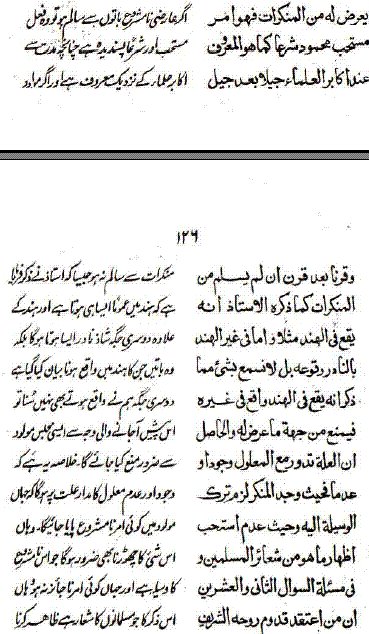 يعرض له من المنكرات فهو امر
مستحب محمود شرعا كما هو المعروف
عند اكابر العلماء جيلا بعد جيل
اگر عارضی نامشروع باتوں سے سالم ہو تو وہ فعل
مستحب اور شرعا پسندیدہ ہے چنانچہ مدت سے
اکابر علماء کے نزدیک معروف ہے اور اگر مولود
۱۲۶
وقرنا بعد قرن ان لم يسلم من
المنكرات كما ذكره الاستاذ انه
يقع فى الهند مثلا و اما فى غير الهند
بالنادر وقوعه بل لا نسمع بشئ مما
ذكر انه يقع فى الهند واقع فى غيره
فيمنع من جهة ما عرض له والحاصل
ان العلة تدور مع المعلول وجودا و
عدما فحيث وجد المنكر لزم ترك
الوسيلة اليه وحيث عدم استحب
اظهار ما هو من شعائر المسلمين و
فى مسئلة السوال الثانى والعشرين
ان من اعتقد قدوم روحه الشريفة
منکرات سے سالم نہ ہو جیسا کہ استاذ نے ذکر فرمایا
ہے کہ ہند میں عموماً ایسا ہی ہوتا ہے اور ہند کے
علاوہ دوسری جگہ شاذ نادر ایسا ہوتا ہوگا بلکہ
وہ باتیں جن کا ہند میں واقع ہونا بیان کیا گیا ہے
دوسری جگہ ہم نے واقع ہوتے بھی نہیں سُنا تو
اس پیش آجانے والی وجہ سے ایسی مجلس مولود
سے ضرور منع کیا جائے گا۔ خلاصہ یہ ہے کہ
وجود اور عدم معلول کا مدار علت پر ہوگا کہ جہاں
مولود میں کوئی امر نامشروع پایا جائیگا۔ وہاں
اس شئ کا چھوڑنا بھی ضرور ہوگا جو اس نامشروع
کا وسیلہ ہے اور جہاں کوئی امر ناجائز نہ ہو وہاں
اس ذکر کا جو مسلمانوں کا شعار ہے ظاہر کرنا